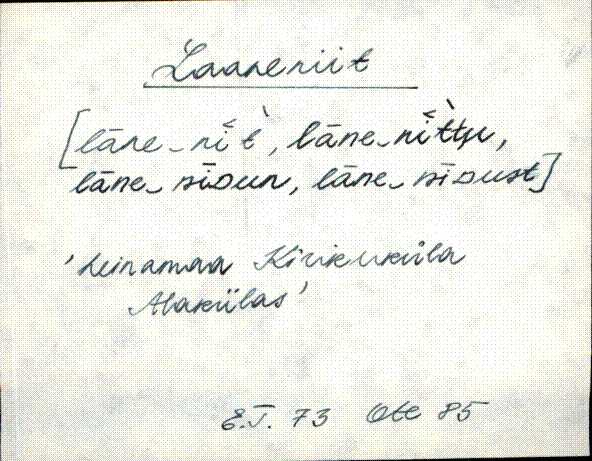 Laaneniit
[lāne_nī̆t̀, lāne_nī̆t̀tu,
lāne_nīDun, lāne_nīDust]
'heinamaa Kirikuküla
Alakülas'
E.T. 73 Ote 85